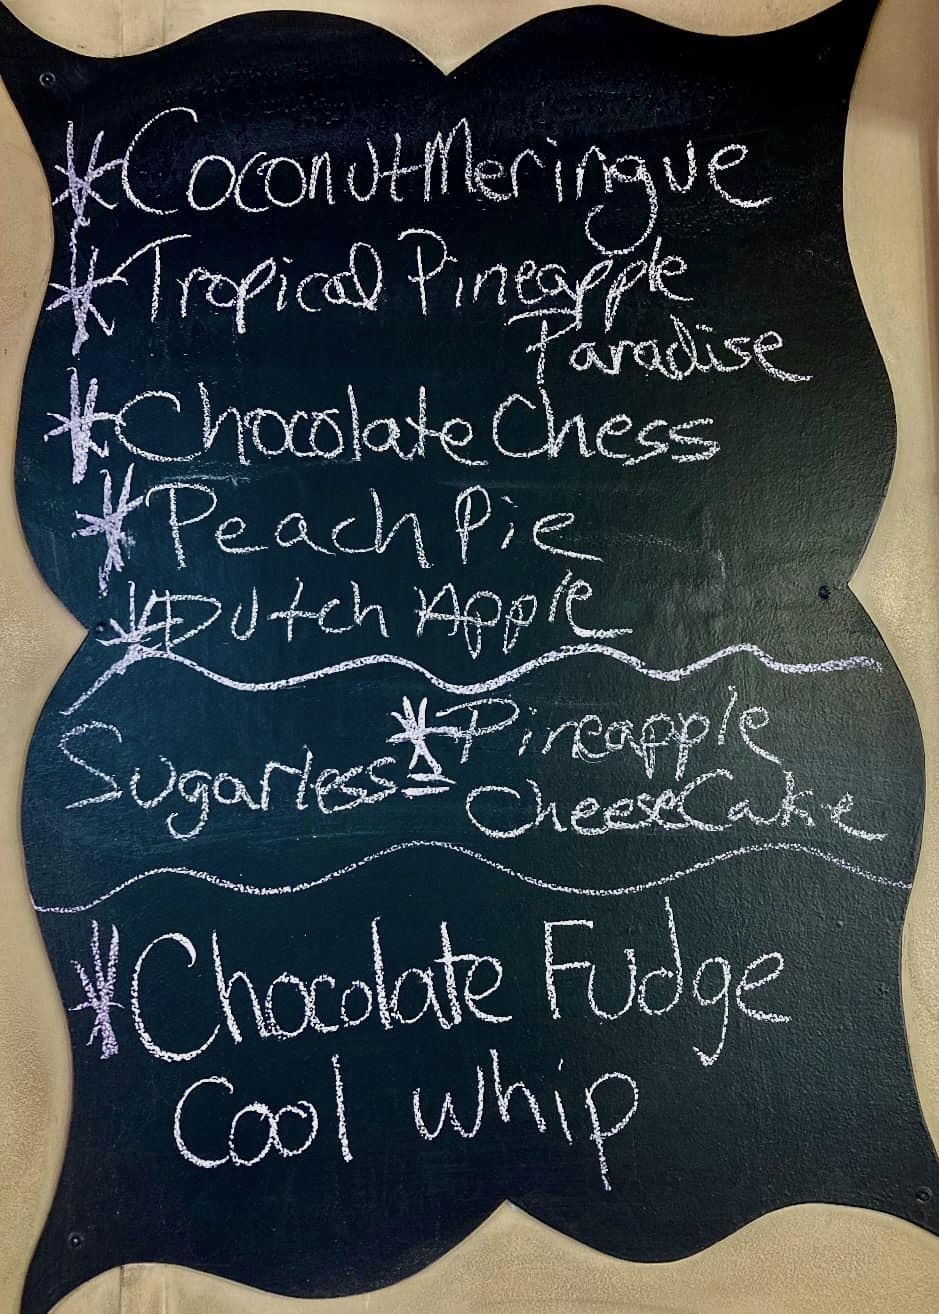 * Coconut Meringue
* Tropical Pineapple
Paradise
* Chocolate Chess
* Peach Pie
* Dutch Apple
Sugarless * Pineapple
CheeseCake
* Chocolate Fudge
Cool whip